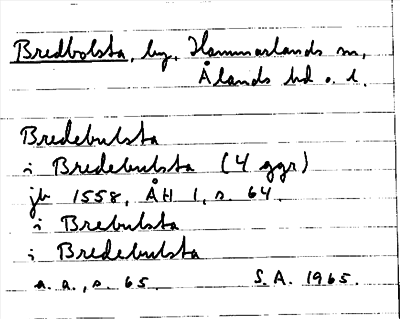 Bredbolsta, by, Hammarlands sn,
Ålands hd o. l.
Bredebulsta
i Bredebulsta (4 ggr)
jb 1558, ÅH 1, s. 64.
i Brebulsta
i Bredebulsta
a. a., s. 65. S.A. 1965.